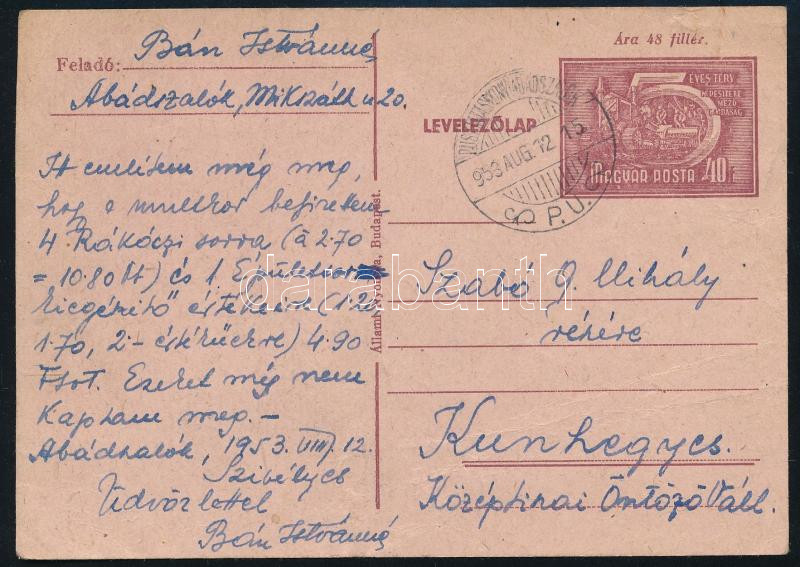 Feladó: Bán Istvánné
Abádszalók, Mikszáth u 20.
Itt említem még meg,
hogy a multkor befizettem
4. Rákóczi sorra (à 2.70
= 10.80 Ft) és 1.
kiegészítő értékeire (1.20
1.70, 2.- értékűekre) 4.90
Ftot. Ezeket még nem
kaptam meg. -
Abádszalók, 1953. VIII. 12.
Szibélyes
Üdvözlettel
Bán Istvánné
Állami Nyomda, Budapest.
Ára 48 fillér.
LEVELEZŐLAP
5 ÉVES TERV
MAGYAR POSTA 40f
953 AUG. 12. 15
P. U.
Szabó G. Mihály
részére
Kunhegyes.
Középtiszai Öntöző Váll.
darabanth